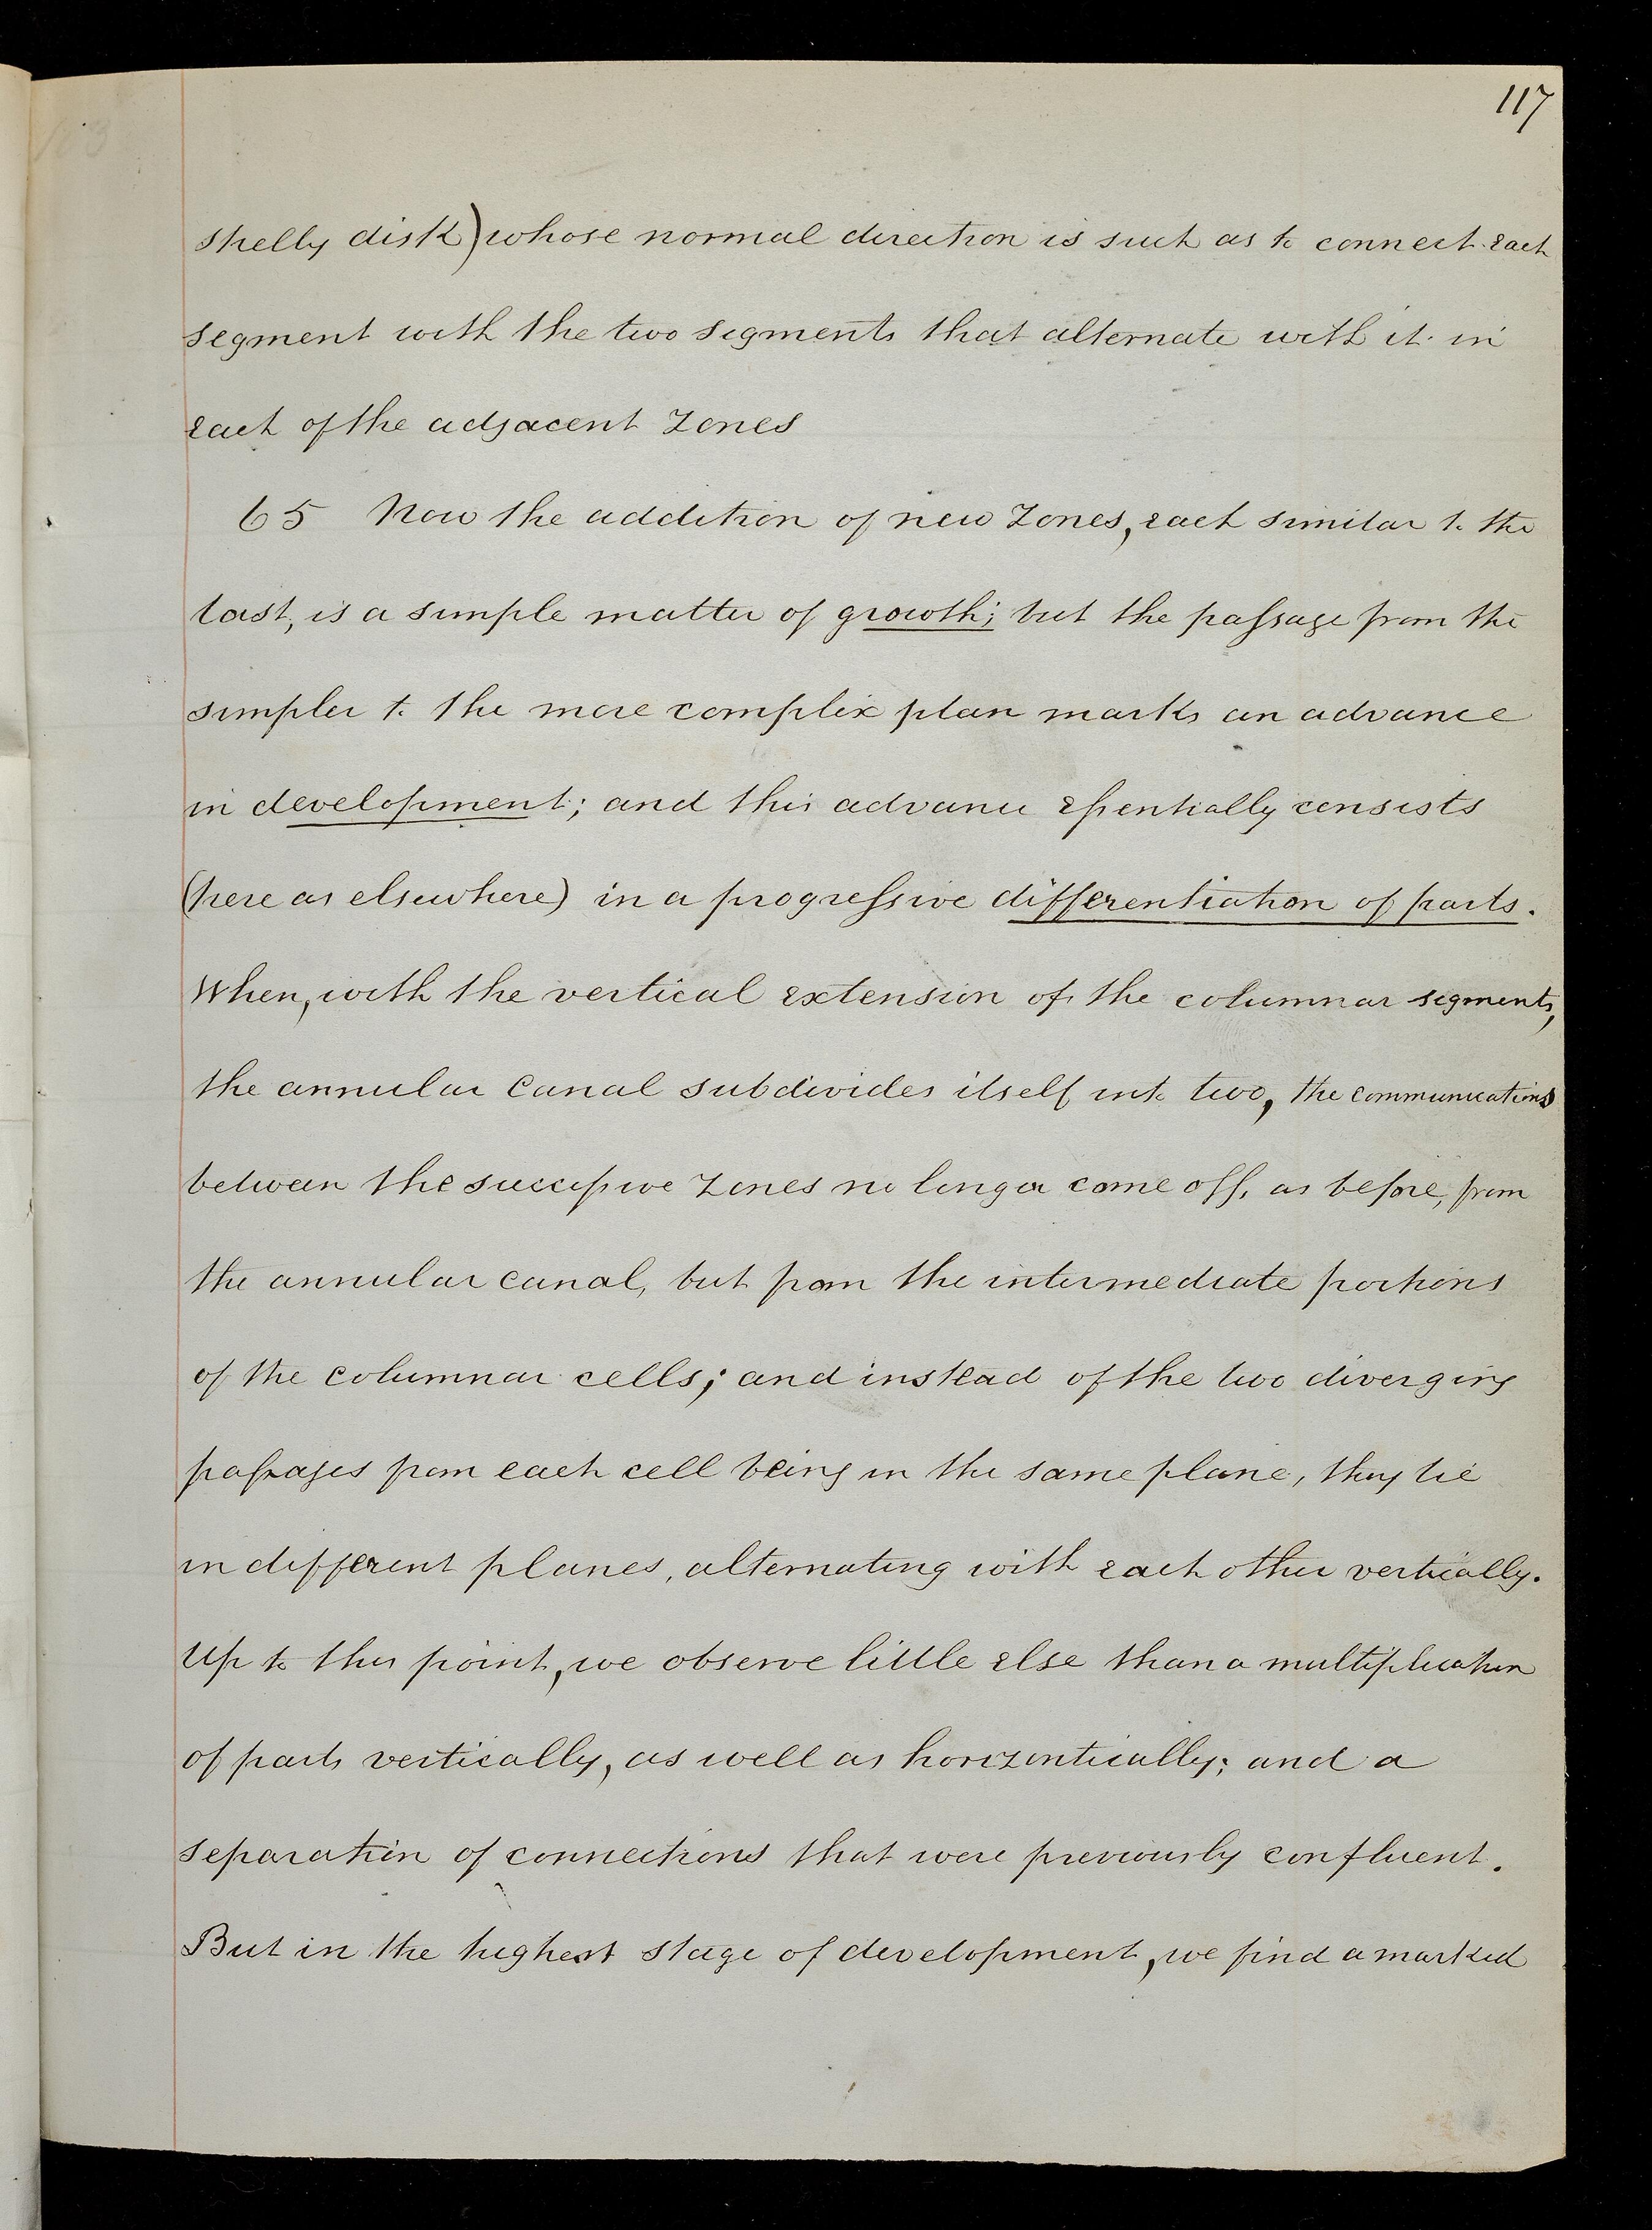 117
shelly disk) whose normal direction is such as to connect each
segment with the two segments that alternate with it in
each of the adjacent zones
65 Now the addition of new zones, each similar to the
last, is a simple matter of growth; but the passage from the
simpler to the more complex plan marks an advance
in development; and this advance essentially consists
(here as elsewhere) in a progressive differentiation of parts.
When, with the vertical extension of the columnar segments,
the annular canal subdivides itself into two, the communications
between the successive zones no longer come off, as before, from
the annular canal, but from the intermediate portions
of the columnar cells; and instead of the two diverging
passages from each cell being in the same plane, they lie
in different planes, alternating with each other vertically.
Up to this point, we observe little else than a multiplication
of parts vertically, as well as horizontically; and a
separation of connections that were previously confluent.
But in the highest stage of development, we find a marked